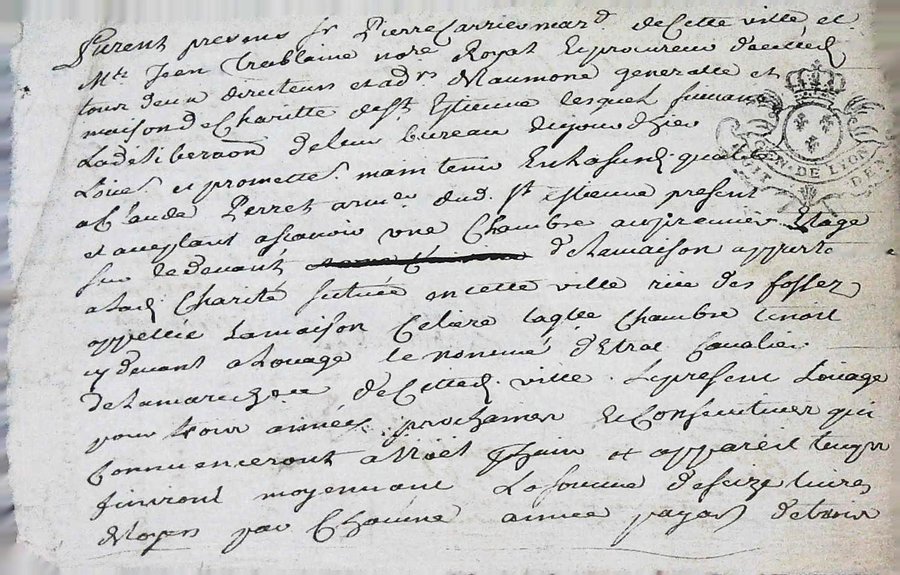 Furent presens Sr Pierre Carrier mard de Cette ville et
Mtre Jean Treblaine nore Royal Et procureur
tous deux directeurs et adrs de l'aumone generalle et
maison de Charitte de St Estienne lesquels suivant
La deliberaon de leur bureau de jourdhier
Loüe et promettes maintenir
a Claude Perret armer dud. St Estienne present
et aceptant ascavoir une Chambre au premier Etage
sur le devant de la maison apparte
a lad. Charité scituée en cette ville rüe des fossez
appellée La maison Celiere laqlle Chambre tenoit
cy devant a Loüage le nommé d'Etral Cavalier
de la marechzee de Cetted. ville. Le present Loüage
pour années prochaines Et Consecutives qui
Commenceront a Noel pchain et a appareil temps
finiront moyennant La somme de seize livres
de loyer par Chacune année payab de trois
GEN. DE LYON